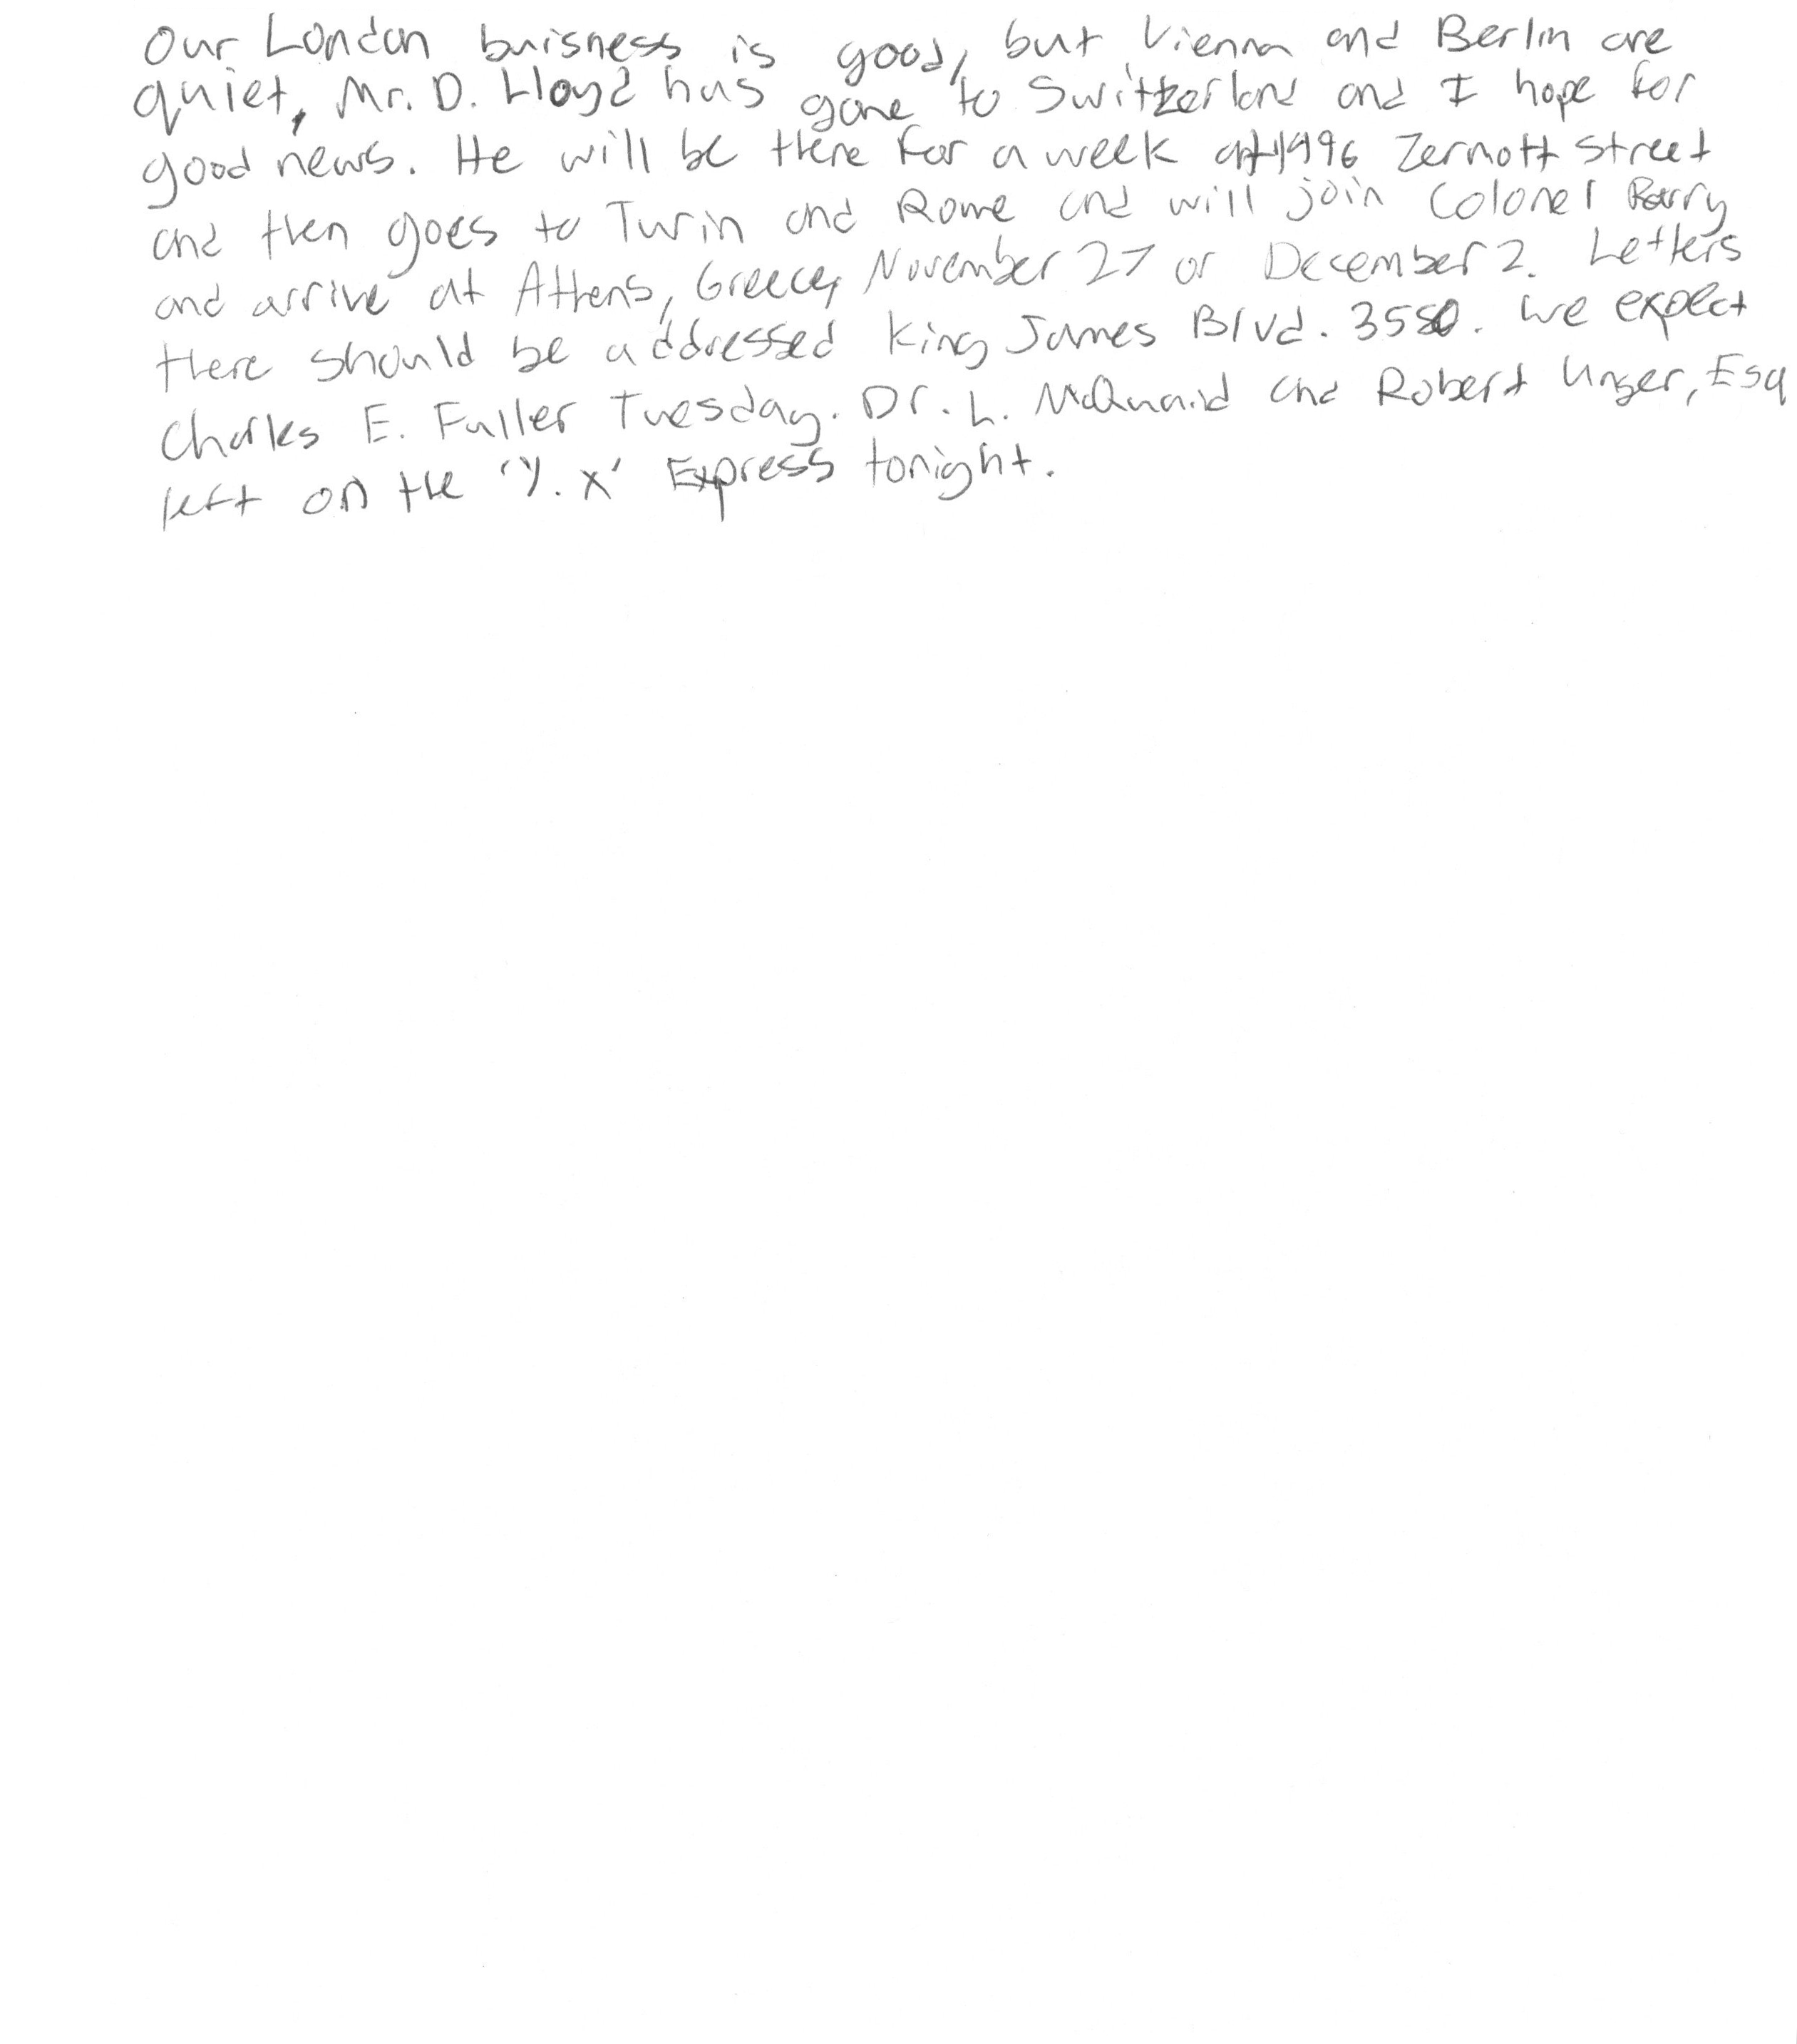 Our London buisness is good, but Vienna and Berlin are
quiet, Mr. D. Lloyd has gone to Switzerland and I hope for
good news. He will be there for a week at 1996 Zermott Street
and then goes to Turin and Rome and will join Colonel Parry
and arrive at Athens, Greece, November 27 or December 2. Letters
there should be addressed King James Blvd. 3580. We expect
Charles E. Fuller Tuesday. Dr. L. McQuaid and Robert Unger, Esq
left on the 'Y. X' Express tonight.